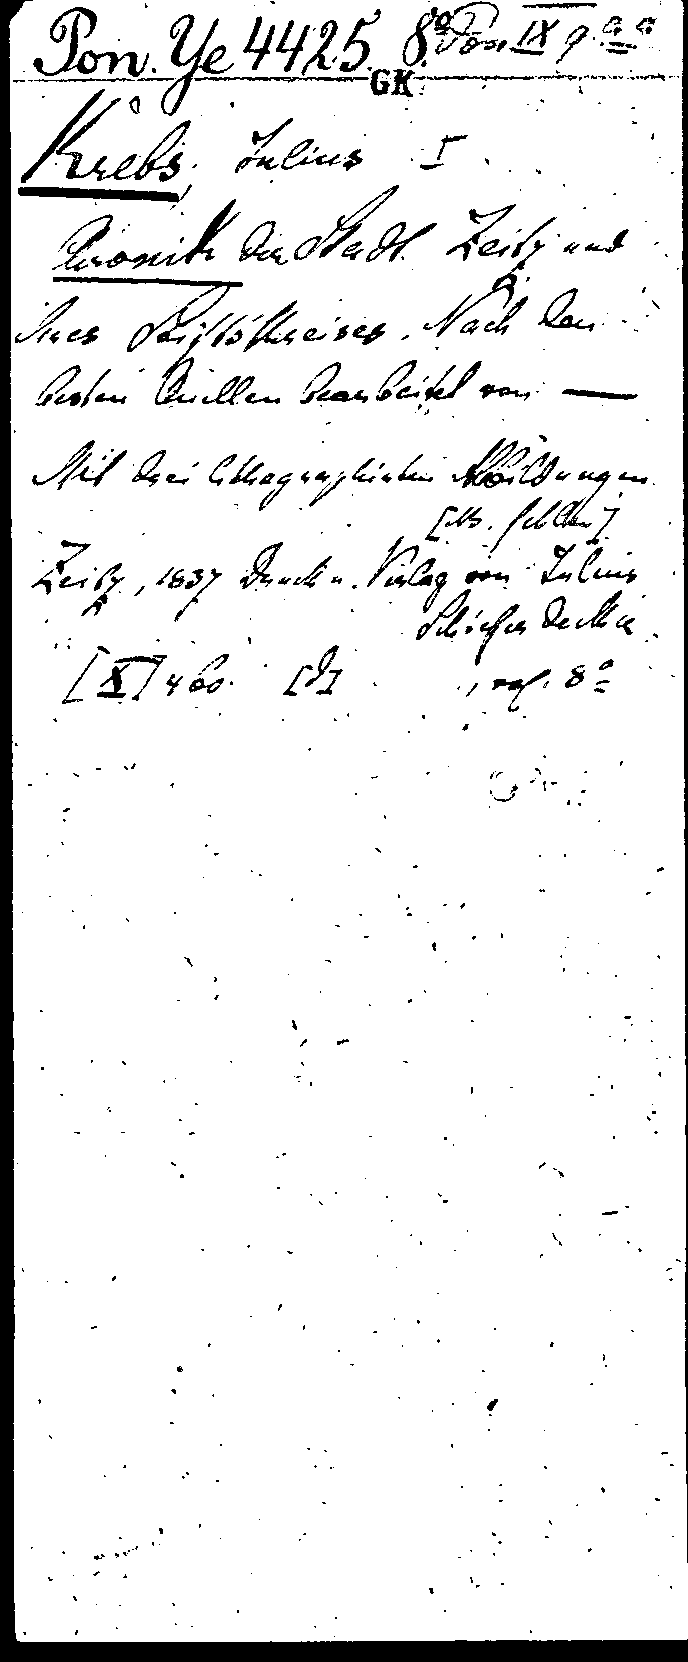 Pon. Ye 4425. 8° Pon IX
GK
Krebs, Julius I
Chronik der Stadt Zeitz und
ihres Stiftskreises. Nach den
besten Quellen bearbeitet von —
Mit drei lithographirten Abbildungen
[3. fehlen]
Zeitz, 1837 Druck u. Verlag von Julius
Schieferdecker
[X] 460. 8°